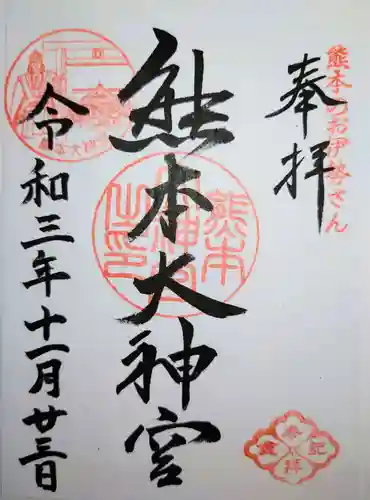 熊本のお伊勢さん
奉拝
熊本大神宮
熊本大神宮之印
令和三年十一月廿三日
参拝記念